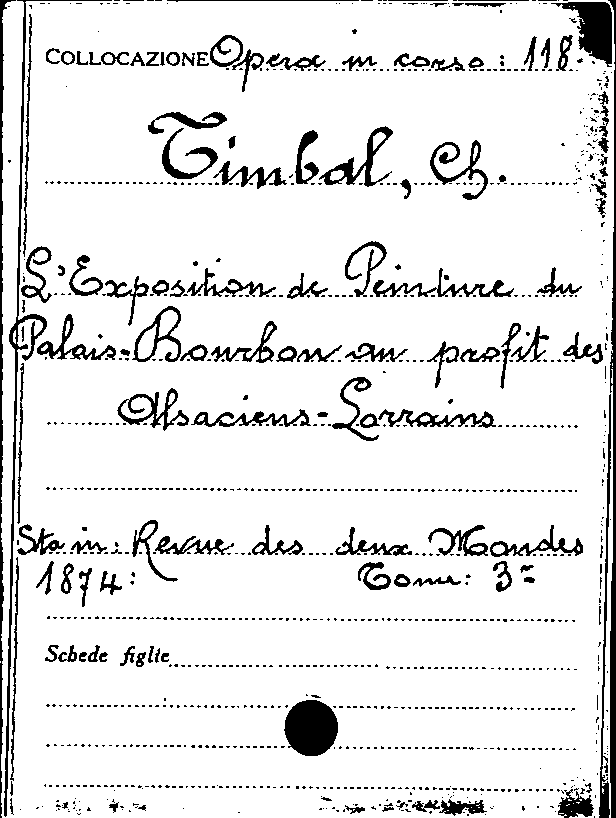 COLLOCAZIONE Opera in corso: 118.
Timbal, Ch.
L'Exposition de Peinture du
Palais-Bourbon au profit des
Alsaciens-Lorrains
Sta in: Revue des deux Mondes
1874: Tome: 3º
Schede figlie